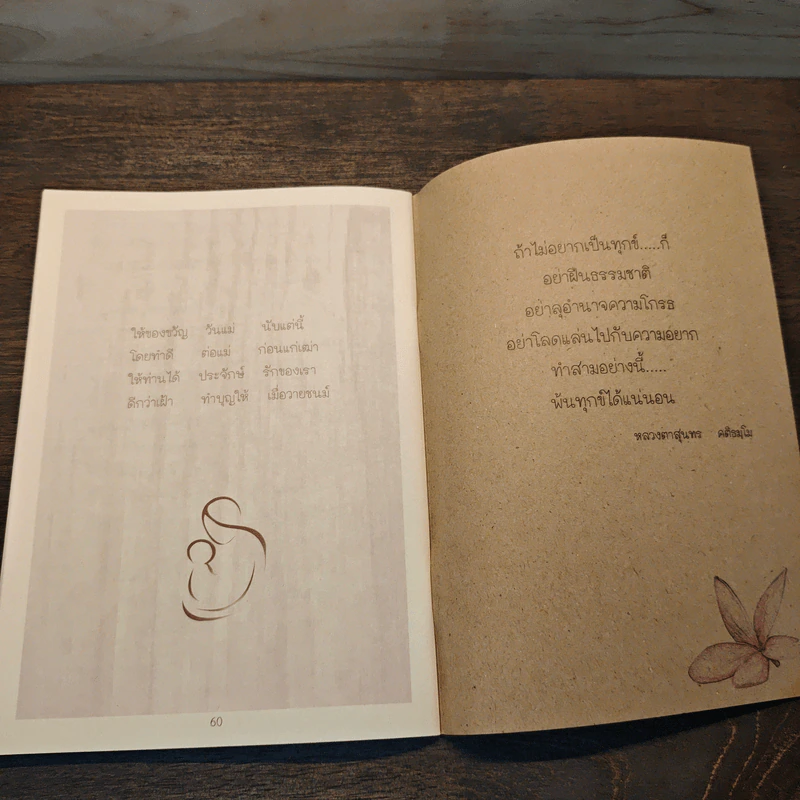 ให้ของขวัญ วันแม่ นับแต่นี้
โดยทำดี ต่อแม่ ก่อนแก่เฒ่า
ให้ท่านได้ ประจักษ์ รักของเรา
ดีกว่าเฝ้า ทำบุญให้ เมื่อวายชนม์
60
ถ้าไม่อยากเป็นทุกข์.....ก็
อย่าฝืนธรรมชาติ
อย่าลุอำนาจความโกรธ
อย่าโลดแล่นไปกับความอยาก
ทำสามอย่างนี้.....
พ้นทุกข์ได้แน่นอน
หลวงตาสุนทร คติธมฺโม